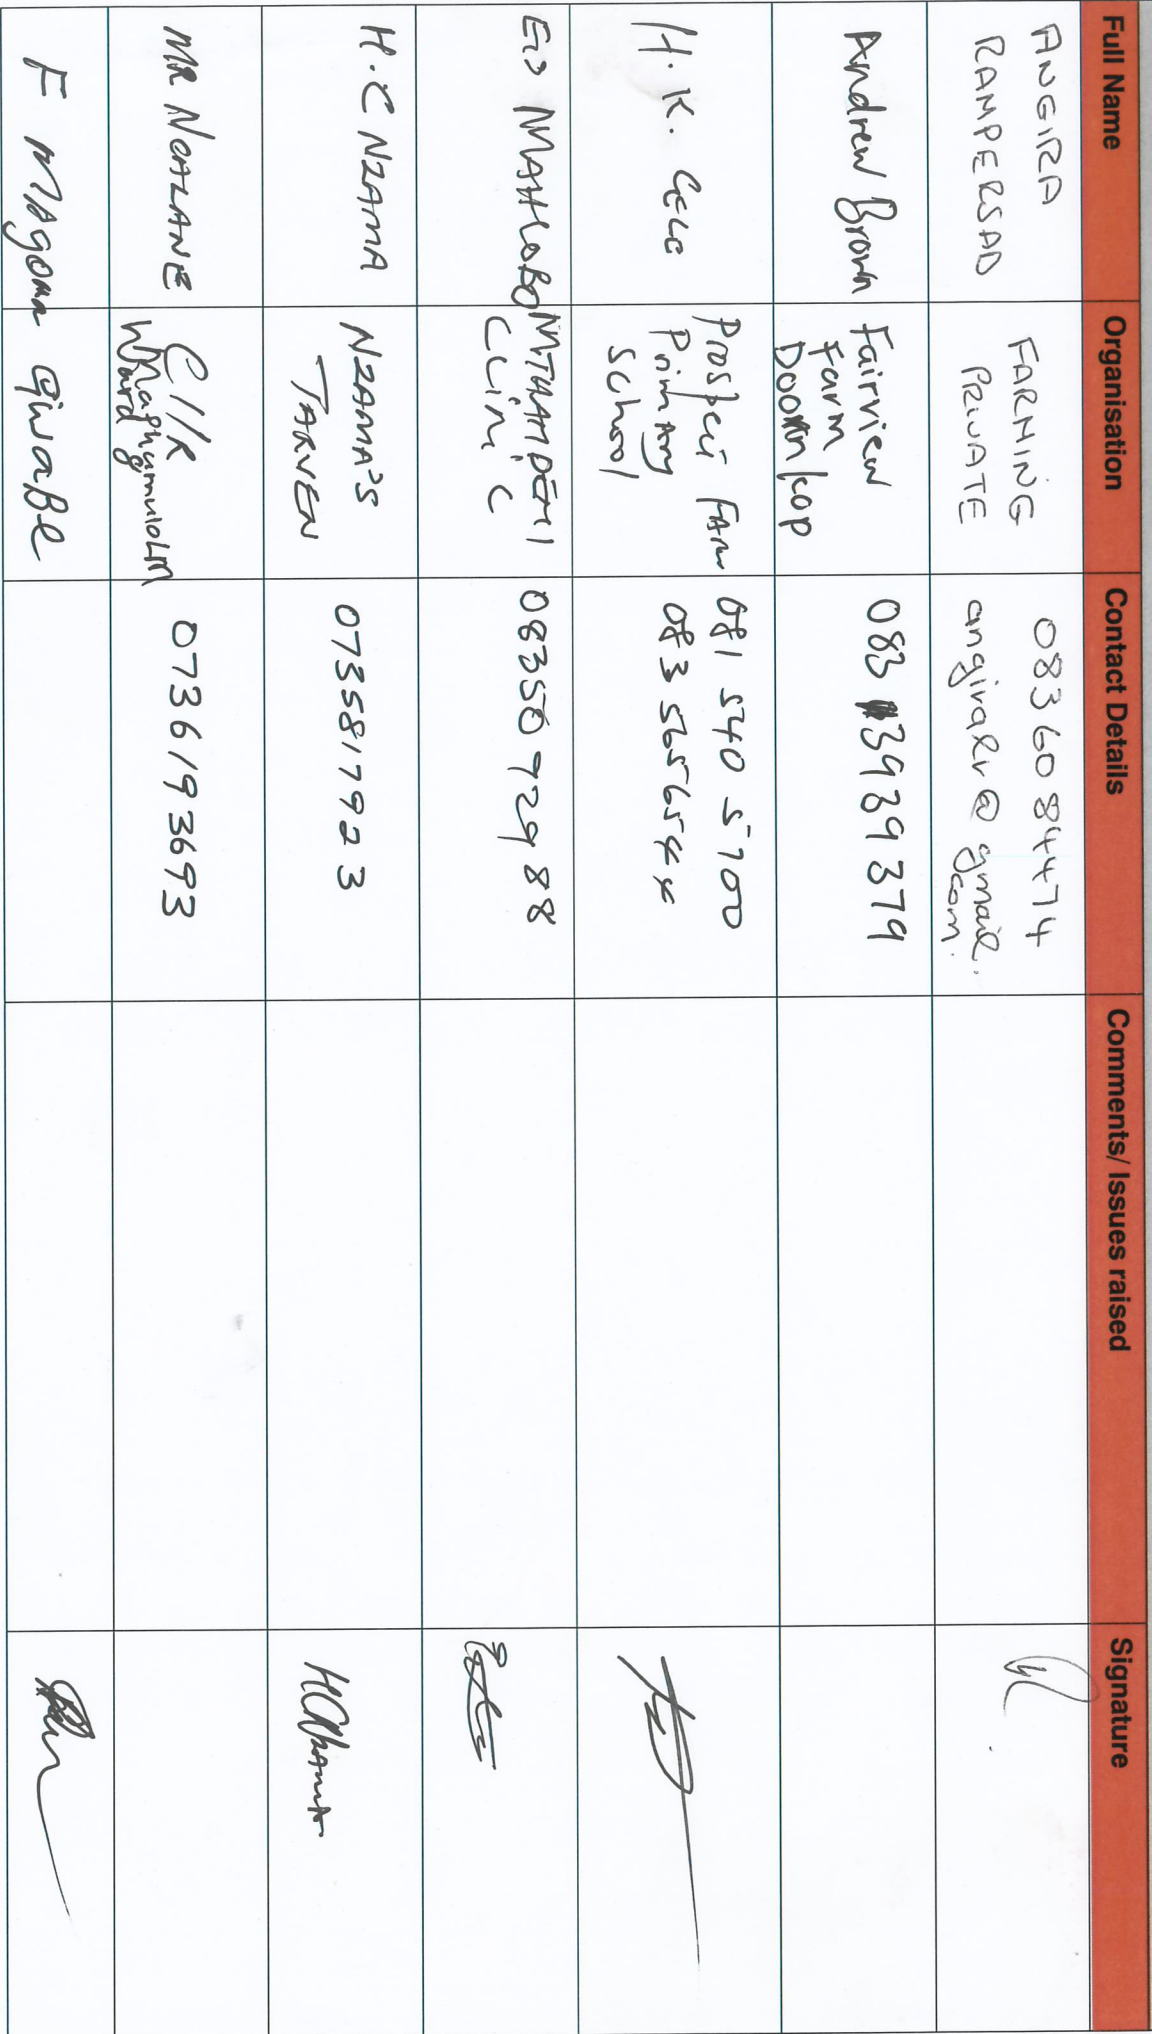 Full Name Organisation Contact Details Comments/ Issues raised Signature
ANGIRA
RAMPERSAD
FARMING
PRIVATE
083 60 84474
angiralr@gmail.
com.
Andrew Brown
Fairview
Farm
Doornkop
083 3939 379
H. K. Cele
Prospect Farm
Primary
School
081 540 5700
083 5656544
MAHLOBO
Clinic
H.C NZAMA
NZAMA'S
TARVEN
0735817923
MR NGAZANE
Cllr
Ward
0736193693
F Magoma Gwabe